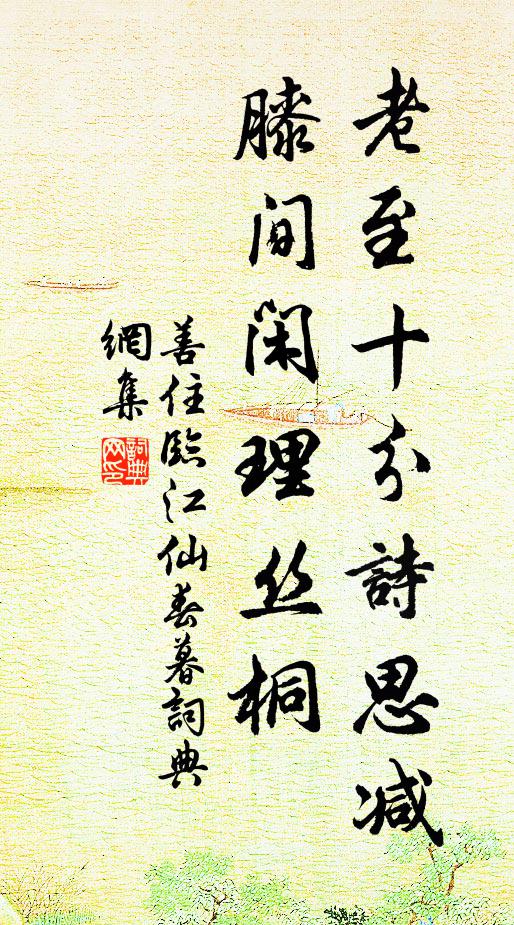 老至十分詩思减
膝间闲理丝桐
善住臨江仙春暮詞典
網集
詞典網印